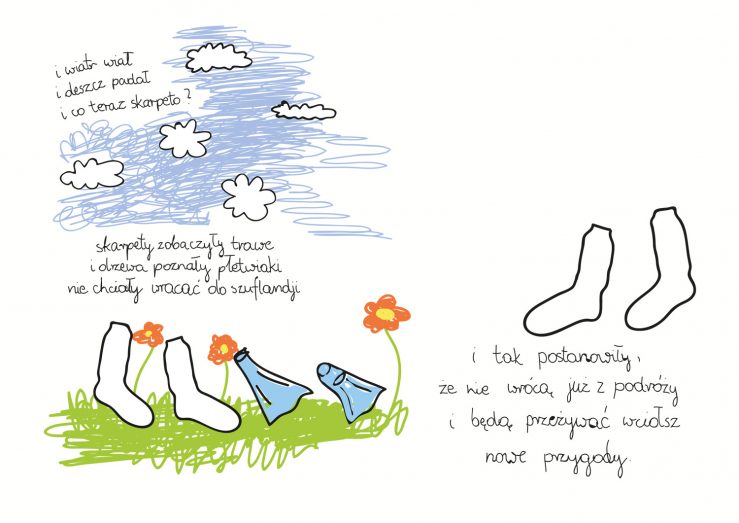 i wiatr wiał
i deszcz padał
i co teraz skarpeto?
skarpety zobaczyły trawę
i drzewa poznały płetwiaki
nie chciały wracać do szuflandji
i tak postanowiły,
że nie wrócą już z podróży
i będą przeżywać wciąsz
nowe przygody.